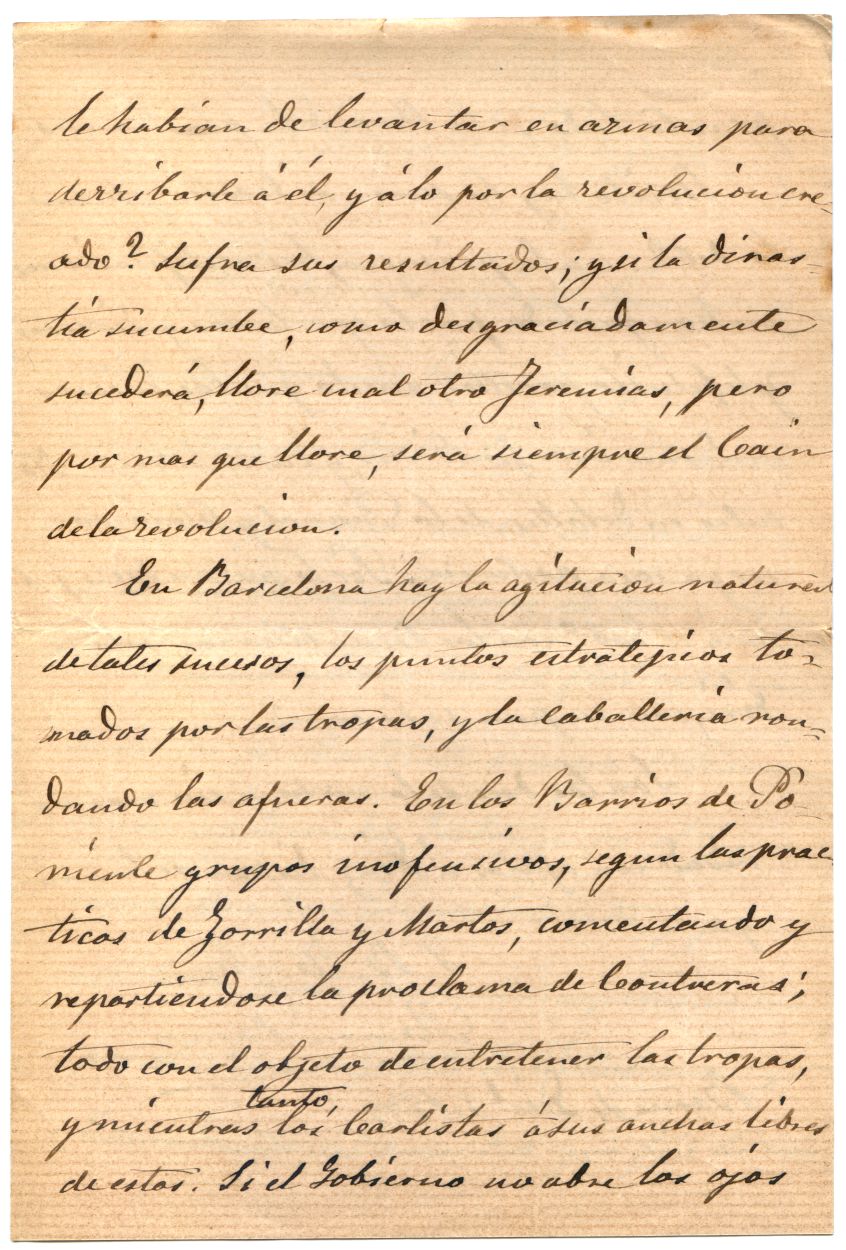 se habian de levantar en armas para
derribarle á él, y á lo por la revolucion cre-
ado? Sufra sus resultados; y si la dinas-
tia sucumbe, como desgraciadamente
sucederá, llore cual otro Jeremias, pero
por mas que llore, será siempre el Cain
de la revolucion.
En Barcelona hay la agitacion natural
de tales sucesos, los puntos estratejicos to-
mados por las tropas, y la caballeria ron-
dando las afueras. En los Barrios de Po-
niente grupos inofensivos, segun las prac-
ticas de Zorrilla y Martos, comentando y
repartiendose la proclama de Contreras;
todo con el objeto de entretener las tropas,
y mientras tanto, los Carlistas á sus anchas libres
de estas. Si el Gobierno no abre los ojos